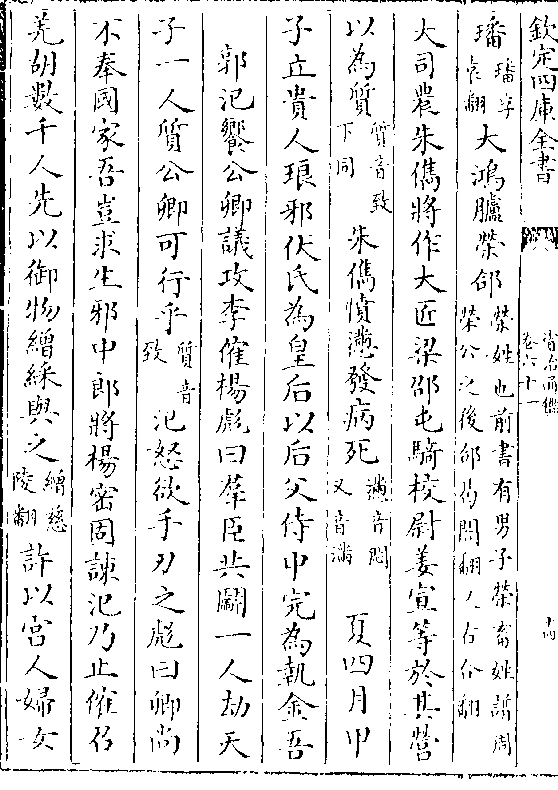 欽定四庫全書
資治通鑑
卷六十一
十四
璠璠孚袁翻大鴻臚榮郃榮姓也前書有男子榮畜姓譜周榮公之後郃曷閤翻又古合翻
大司農朱儁將作大匠梁邵屯騎校尉姜宣等於其營
以為質質音致下同朱儁憤懣發病死懣音悶又音滿夏四月甲
子立貴人琅邪伏氏為皇后以后父侍中完為執金吾
郭汜饗公卿議攻李傕楊彪曰羣臣共鬭一人劫天
子一人質公卿可行乎質音致汜怒欲手刃之彪曰卿尚
不奉國家吾豈求生邪中郎將楊密固諫汜乃止傕召
羌胡數千人先以御物繒綵與之繒慈陵翻許以宮人婦女